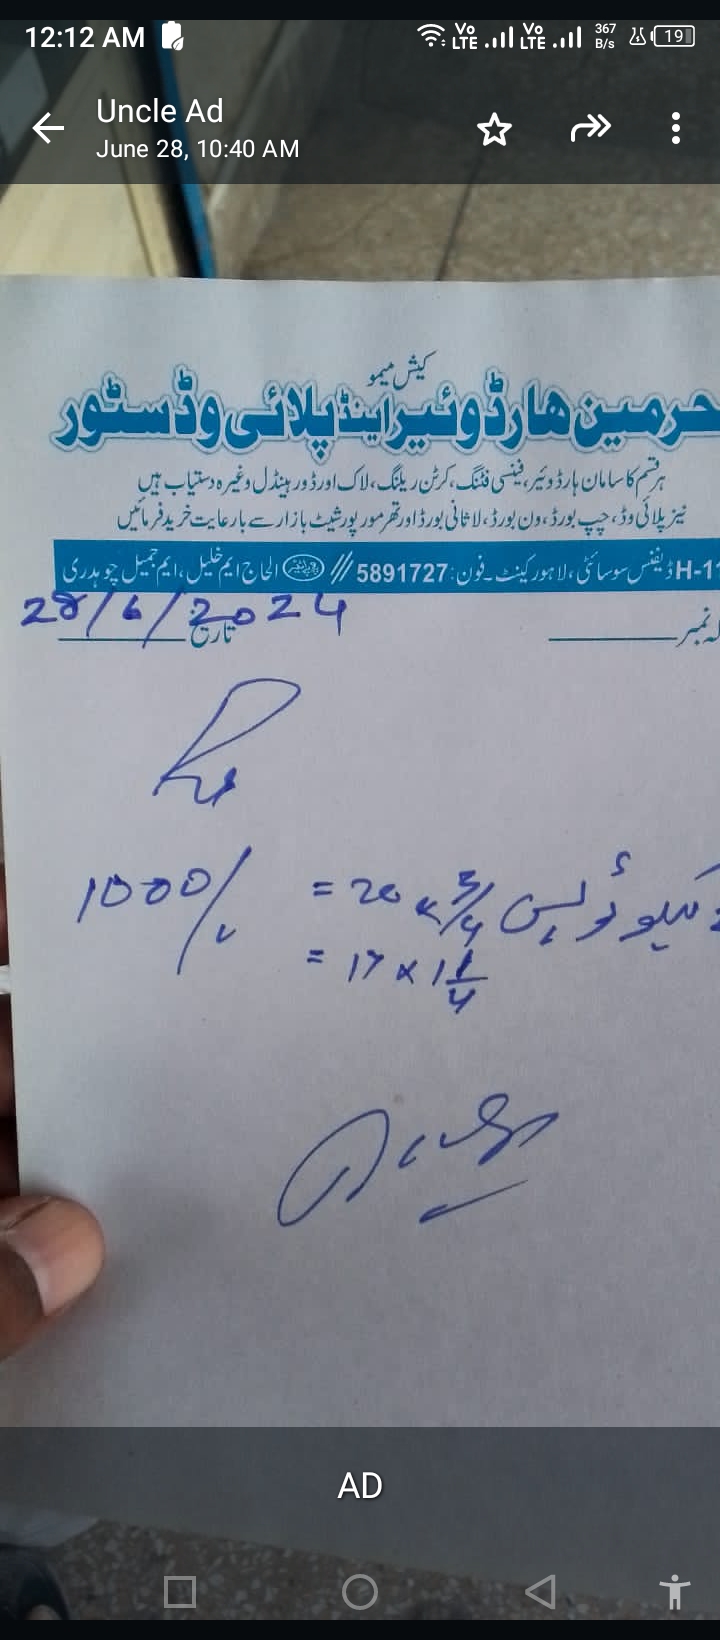 12:12 AM Vo LTE Vo LTE 367 B/s 19
Uncle Ad
June 28, 10:40 AM
کیش میمو
حرمین ھارڈوئیر اینڈ پلائی وڈ سٹور
ہر قسم کا سامان ہارڈوئیر، فینسی فٹنگ، کرٹن ریلنگ، لاک اور ڈور ہینڈل وغیرہ دستیاب ہیں
نیز پلائی وڈ، چپ بورڈ، ون بورڈ، لاثانی بورڈ اور تھرمور پور شیٹ بازار سے بارعایت خرید فرمائیں
ڈیفنس سوسائٹی، لاہور کینٹ۔ فون: 5891727 // الحاج ایم خلیل، ایم جمیل چوہدری
نمبر
تاریخ 28/6/2024
= 20 x 3/4 1000/
= 17 x 1 1/4
AD